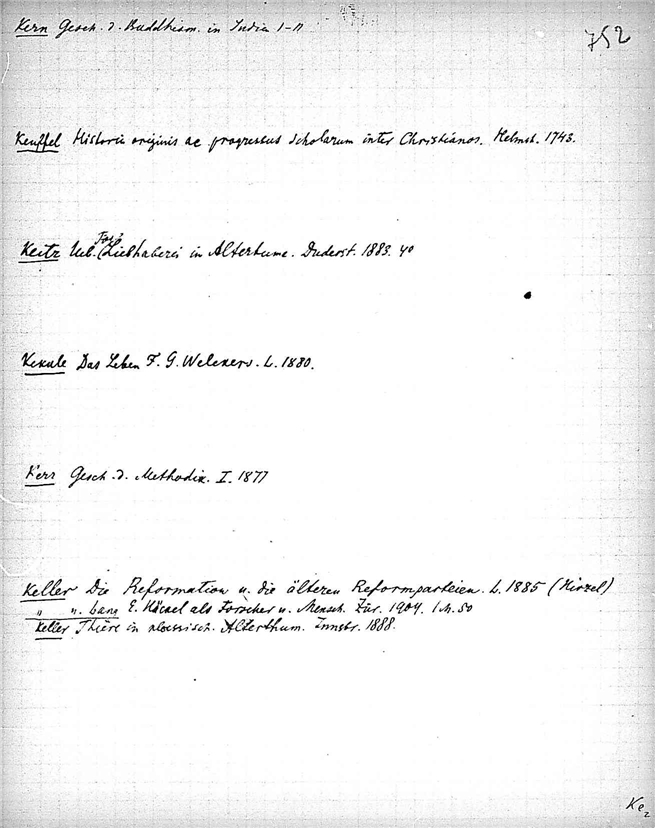 752
Kern Gesch. d. Buddhism. in India I-II
Keuffel Historia originis ac progressus scholarum inter Christianos. Helmst. 1743.
Tier
Keitz Ueb. Liebhaberei in Altertume. Duderst. 1883. 40
Kekule Das Leben F. G. Welckers. L. 1880.
Kerr Gesch. d. Methodik. I. 1877
Keller Die Reformation u. die älteren Reformparteien. L. 1885 (Hirzel)
" u. Lang E. Häckel als Forscher u. Mensch. Zür. 1904. 1 M. 50
Keller Thiere in klassisch. Alterthum. Innsbr. 1888.
Ke2